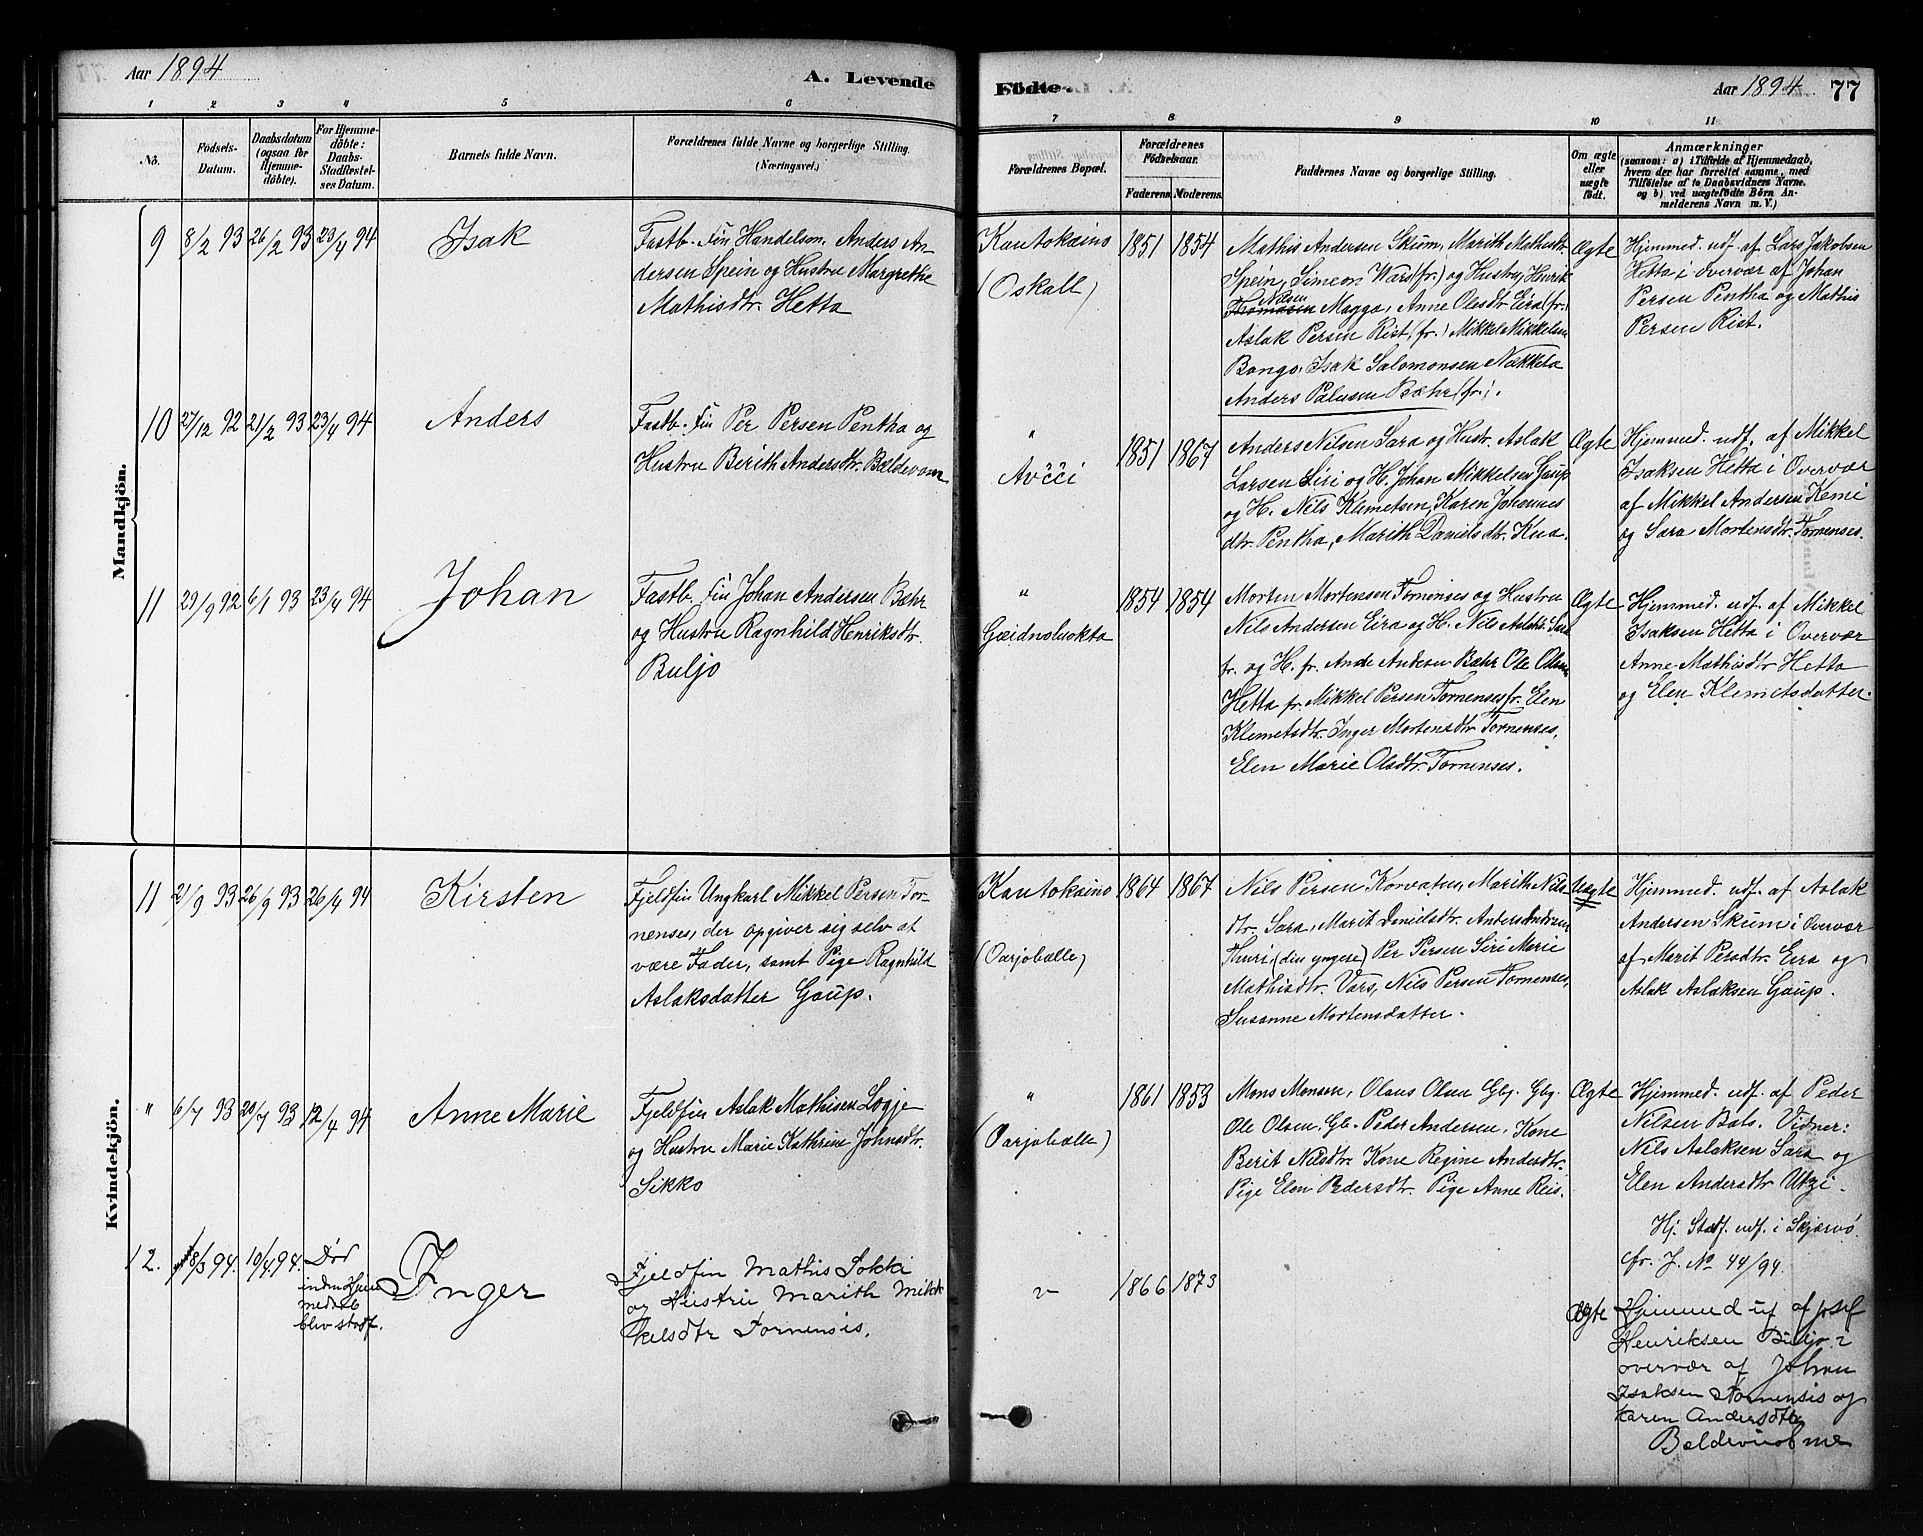 Aar 1894
A. Levende
Födte.
Aar 1894
77
1 2 3 4 5 6
7 8 9 10 11
No.
Födsels-
Datum.
Daabsdatum
(ogsaa for
Hjemme-
döbte).
For Hjemme-
döbte:
Daabs-
Stadfæstel-
ses Datum.
Barnets fulde Navn.
Forældrenes fulde Navne og borgerlige Stilling.
(Næringsvei.)
Forældrenes Bopæl.
Forældrenes
Födselsaar.
Faderens. Moderens.
Faddernes Navne og borgerlige Stilling.
Om ægte
eller
uægte
födt.
Anmærkninger
(saasom: a) i Tilfælde af Hjemmedaab,
hvem der har forrettet samme, med
Tilföielse af to Daabsvidners Navne.
og b) ved uægtefödte Börn An-
melderens Navn m. V.)
Mandkjön.
9 8/2 93 26/2 93 23/4 94 Isak
Fastb. Fin Handelsm. Anders An-
dersen Spein og Hustru Margrethe
Mathisdtr. Hetta
Kautokeino
(Oskall)
1851 1854
Mathis Andersen Skum, Marith Mathisdtr.
Spein, Simeon Wars (fr.) og Hustru, Henrik
Nilsen
Thomasen Magga, Anne Olesdtr Eira (fr.)
Aslak Persen Rist, (fr.) Mikkel Mikkelsen
Bongo, Isak Salomonsen Näkkela
Anders Palusen Bæhr (fr.).
Ægte
Hjemmed. udf. af Lars Jakobsen
Hetta i overvær af Johan
Persen Pentha og Mathis
Persen Rist.
10 27/12 92 21/2 93 23/4 94 Anders
Fastb. Fin Per Persen Pentha og
Hustru Berith Andersdtr. Bældevuome
"
Avčči
1851 1867
Anders Nilsen Sara og Hustr. Aslak
Larsen Siri og H. Johan Mikkelsen Gaup
og H. Nils Klemetsen, Karen Johannes
dtr. Pentha, Marith Danielsdtr. Kua.
Ægte
Hjemmed. udf. af Mikkel
Isaksen Hetta i Overvær
af Mikkel Andersen Kemi
og Sara Mortensdtr. Tornenses.
11 29/9 92 6/1 93 23/4 94 Johan
Fastb. Fin Johan Andersen Bæhr
og Hustru Ragnhild Henriksdtr.
Buljo
"
Gæidnoluokta
1854 1854
Morten Mortensen Tornenses og Hustru
Nils Andersen Eira og H. Nils Aslaks. Sara
fr. og H. fr. Ande Andersen Bæhr Ole Olsen
Hetta fr. Mikkel Persen Tornenses fr. Elen
Klemetsdtr. Inger Mortensdtr Tornenses,
Elen Marie Olsdtr. Tornenses.
Ægte
Hjemmed. udf. af Mikkel
Isaksen Hetta i Overvær
Anne Mathisdtr Hetta
og Elen Klemetsdatter.
Kvindekjön.
11 21/9 93 26/9 93 26/4 94 Kirsten
Fjeldfin Ungkarl Mikkel Persen Tor-
nenses, der opgiver sig selv at
være Fader, samt Pige Ragnhild
Aslaksdatter Gaup.
Kautokeino
(Oarjobælle)
1864 1867
Nils Persen Korvatus, Marith Nils
dtr. Sara, Marit Danielsdtr. Anders Andersen
Thuri (den yngere) Per Persen Siri Marie
Mathisdtr. Vars, Nils Persen Tornenses,
Susanne Mortensdatter.
Uægte
Hjemmed. udf. af Aslak
Andersen Skum i Overvær
af Marit Persdtr. Eira og
Aslak Aslaksen Gaup.
" 6/7 93 20/7 93 12/4 94 Anne Marie
Fjeldfin Aslak Mathisen Logje
og Hustru Marie Kathrine Johnsdtr.
Sikko
"
(Oarjobælle)
1861 1853
Mons Monsen, Olaus Olsen Gbg. Gbg.
Ole Olsen, Gb. Peder Andersen. Kone
Berit Nilsdtr. Kone Regine Andersdtr.
Pige Elen Pedersdtr. Pige Anne Reis.
Ægte
Hjemmed. udf. af Peder
Nilsen Bals. Vidner:
Nils Aslaksen Sara og
Elen Andersdtr Utzi.
Hj. Stadf. udf. i Skjærvö
cfr. J. No 44/94.
12. 18/3 94. 10/4 94. Död
inden Hjem
medaab
blev stadf.
Inger
Fjeldfin Mathis Sokki
og Hustru Marith Mikk
kelsdtr Tornensis.
"
1866 1873
Ægte
Hjemmed udf af Josef
Henriksen Buljo i
overvær af Johan
Isaksen Tornensis og
Karen Andersdtr
Beldevuobme